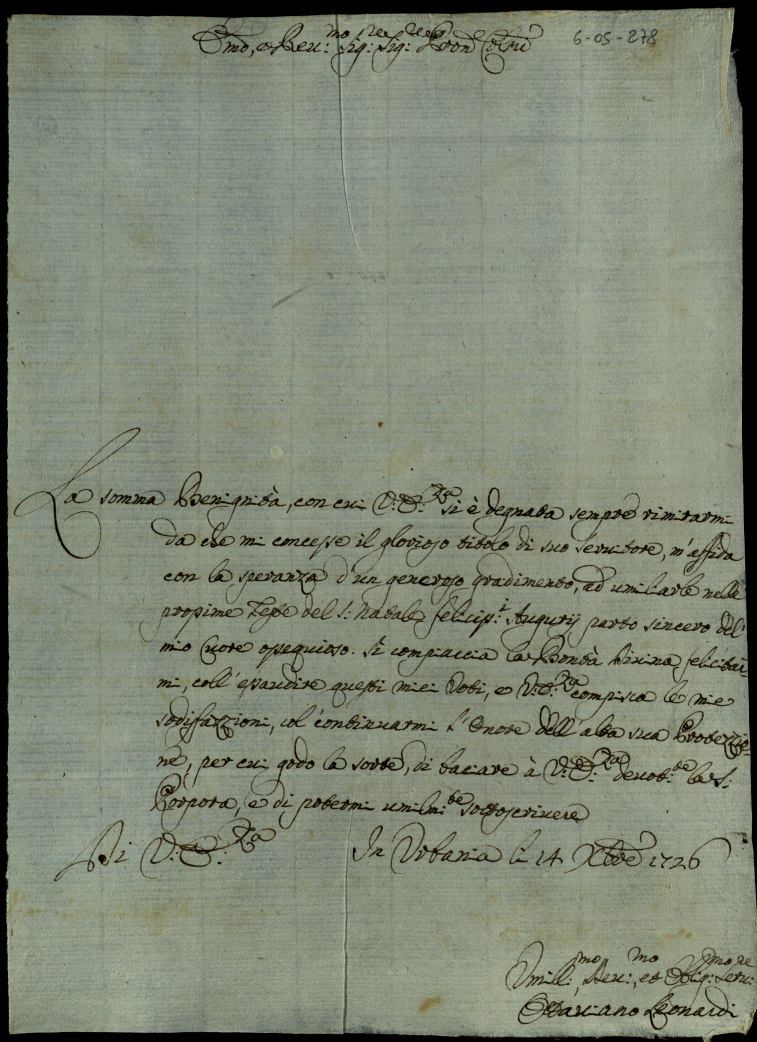 Em̃o, et Reu:mo Sig:re Sig:re Pron̄e Col̄mo 6-05-278
La somma Benignità, con cui V:E:za si è degnata sempre rimirarmi
da che mi concesse il glorioso titolo di suo seruitore, m'affida
con la speranza d'un generoso gradimento, ad umiliarle nelle
prossime Feste del S: Natale feliciss:i Augurij parto sincero del
mio Cuore ossequioso. Si compiaccia la Bontà Diuina felicitar-
mi, coll'esaudire questi miei Voti, e V:E:za compisca le mie
sodisfazzioni, col continuarmi l'Onore dell'alta sua Protezzio-
ne, per cui godo la sorte, di baciare à V:E:za deuot:te la S:
Porpora, e di potermi umilm:te sottoscriuere
Di V:E:za In Urbania li 14 Xbre 1726
Umill:mo, Deu:mo, et Oblig:mo Seru:re
Ottauiano Leonardi